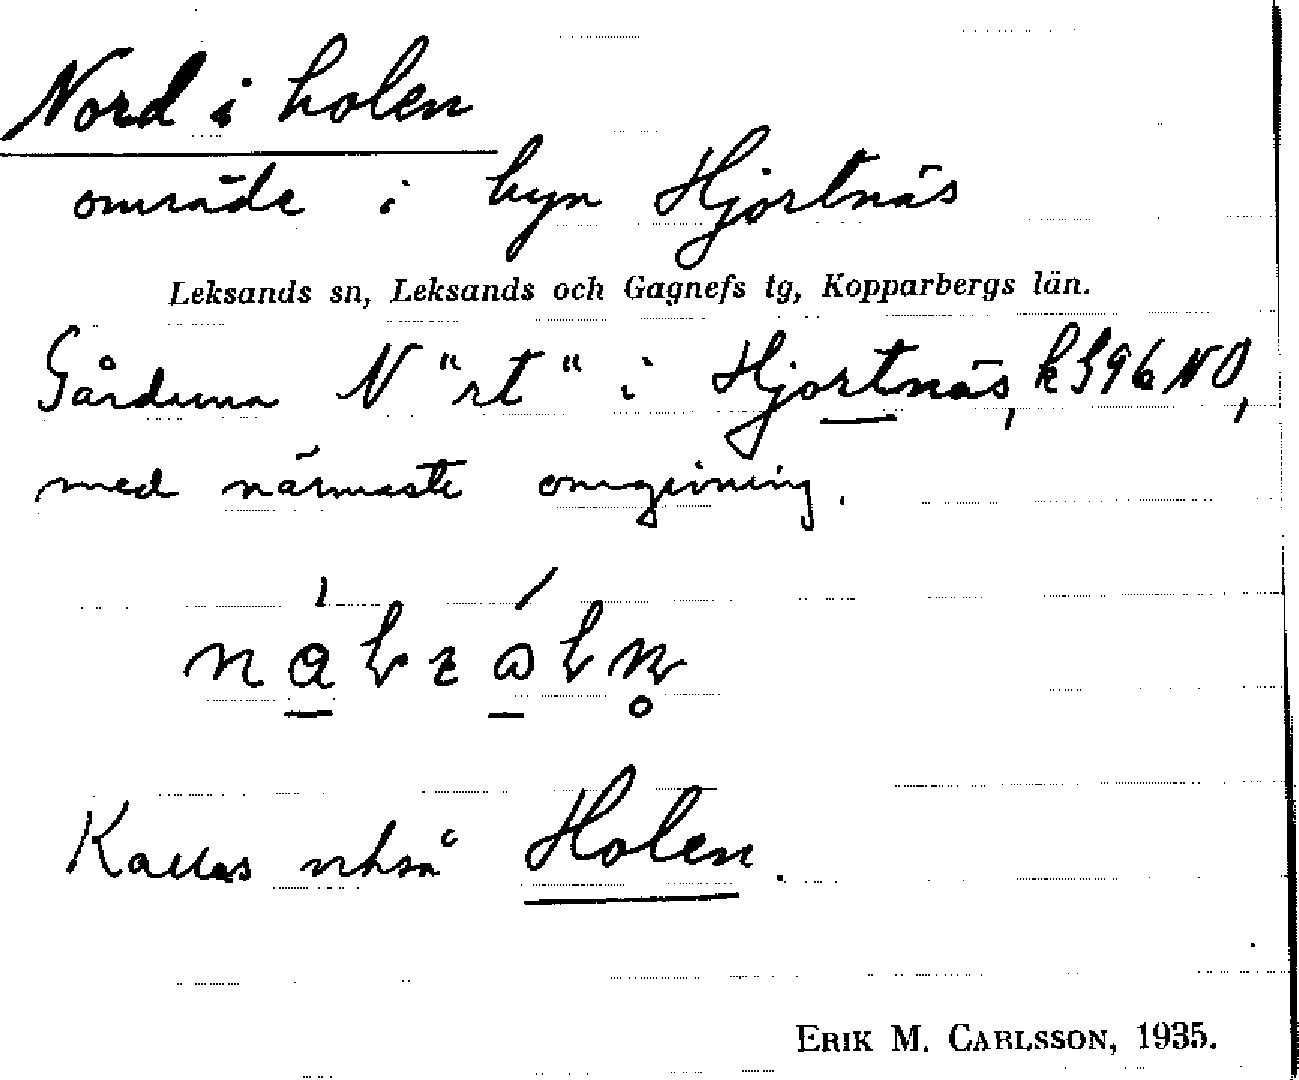 Nord i holen
område i byn Hjortnäs
Leksands sn, Leksands och Gagnefs tg, Kopparbergs län.
Gårdarna N "rt" i Hjortnäs, k 396 NO,
med närmaste omgivning.
Kallas också Holen.
ERIK M. CARLSSON, 1935.